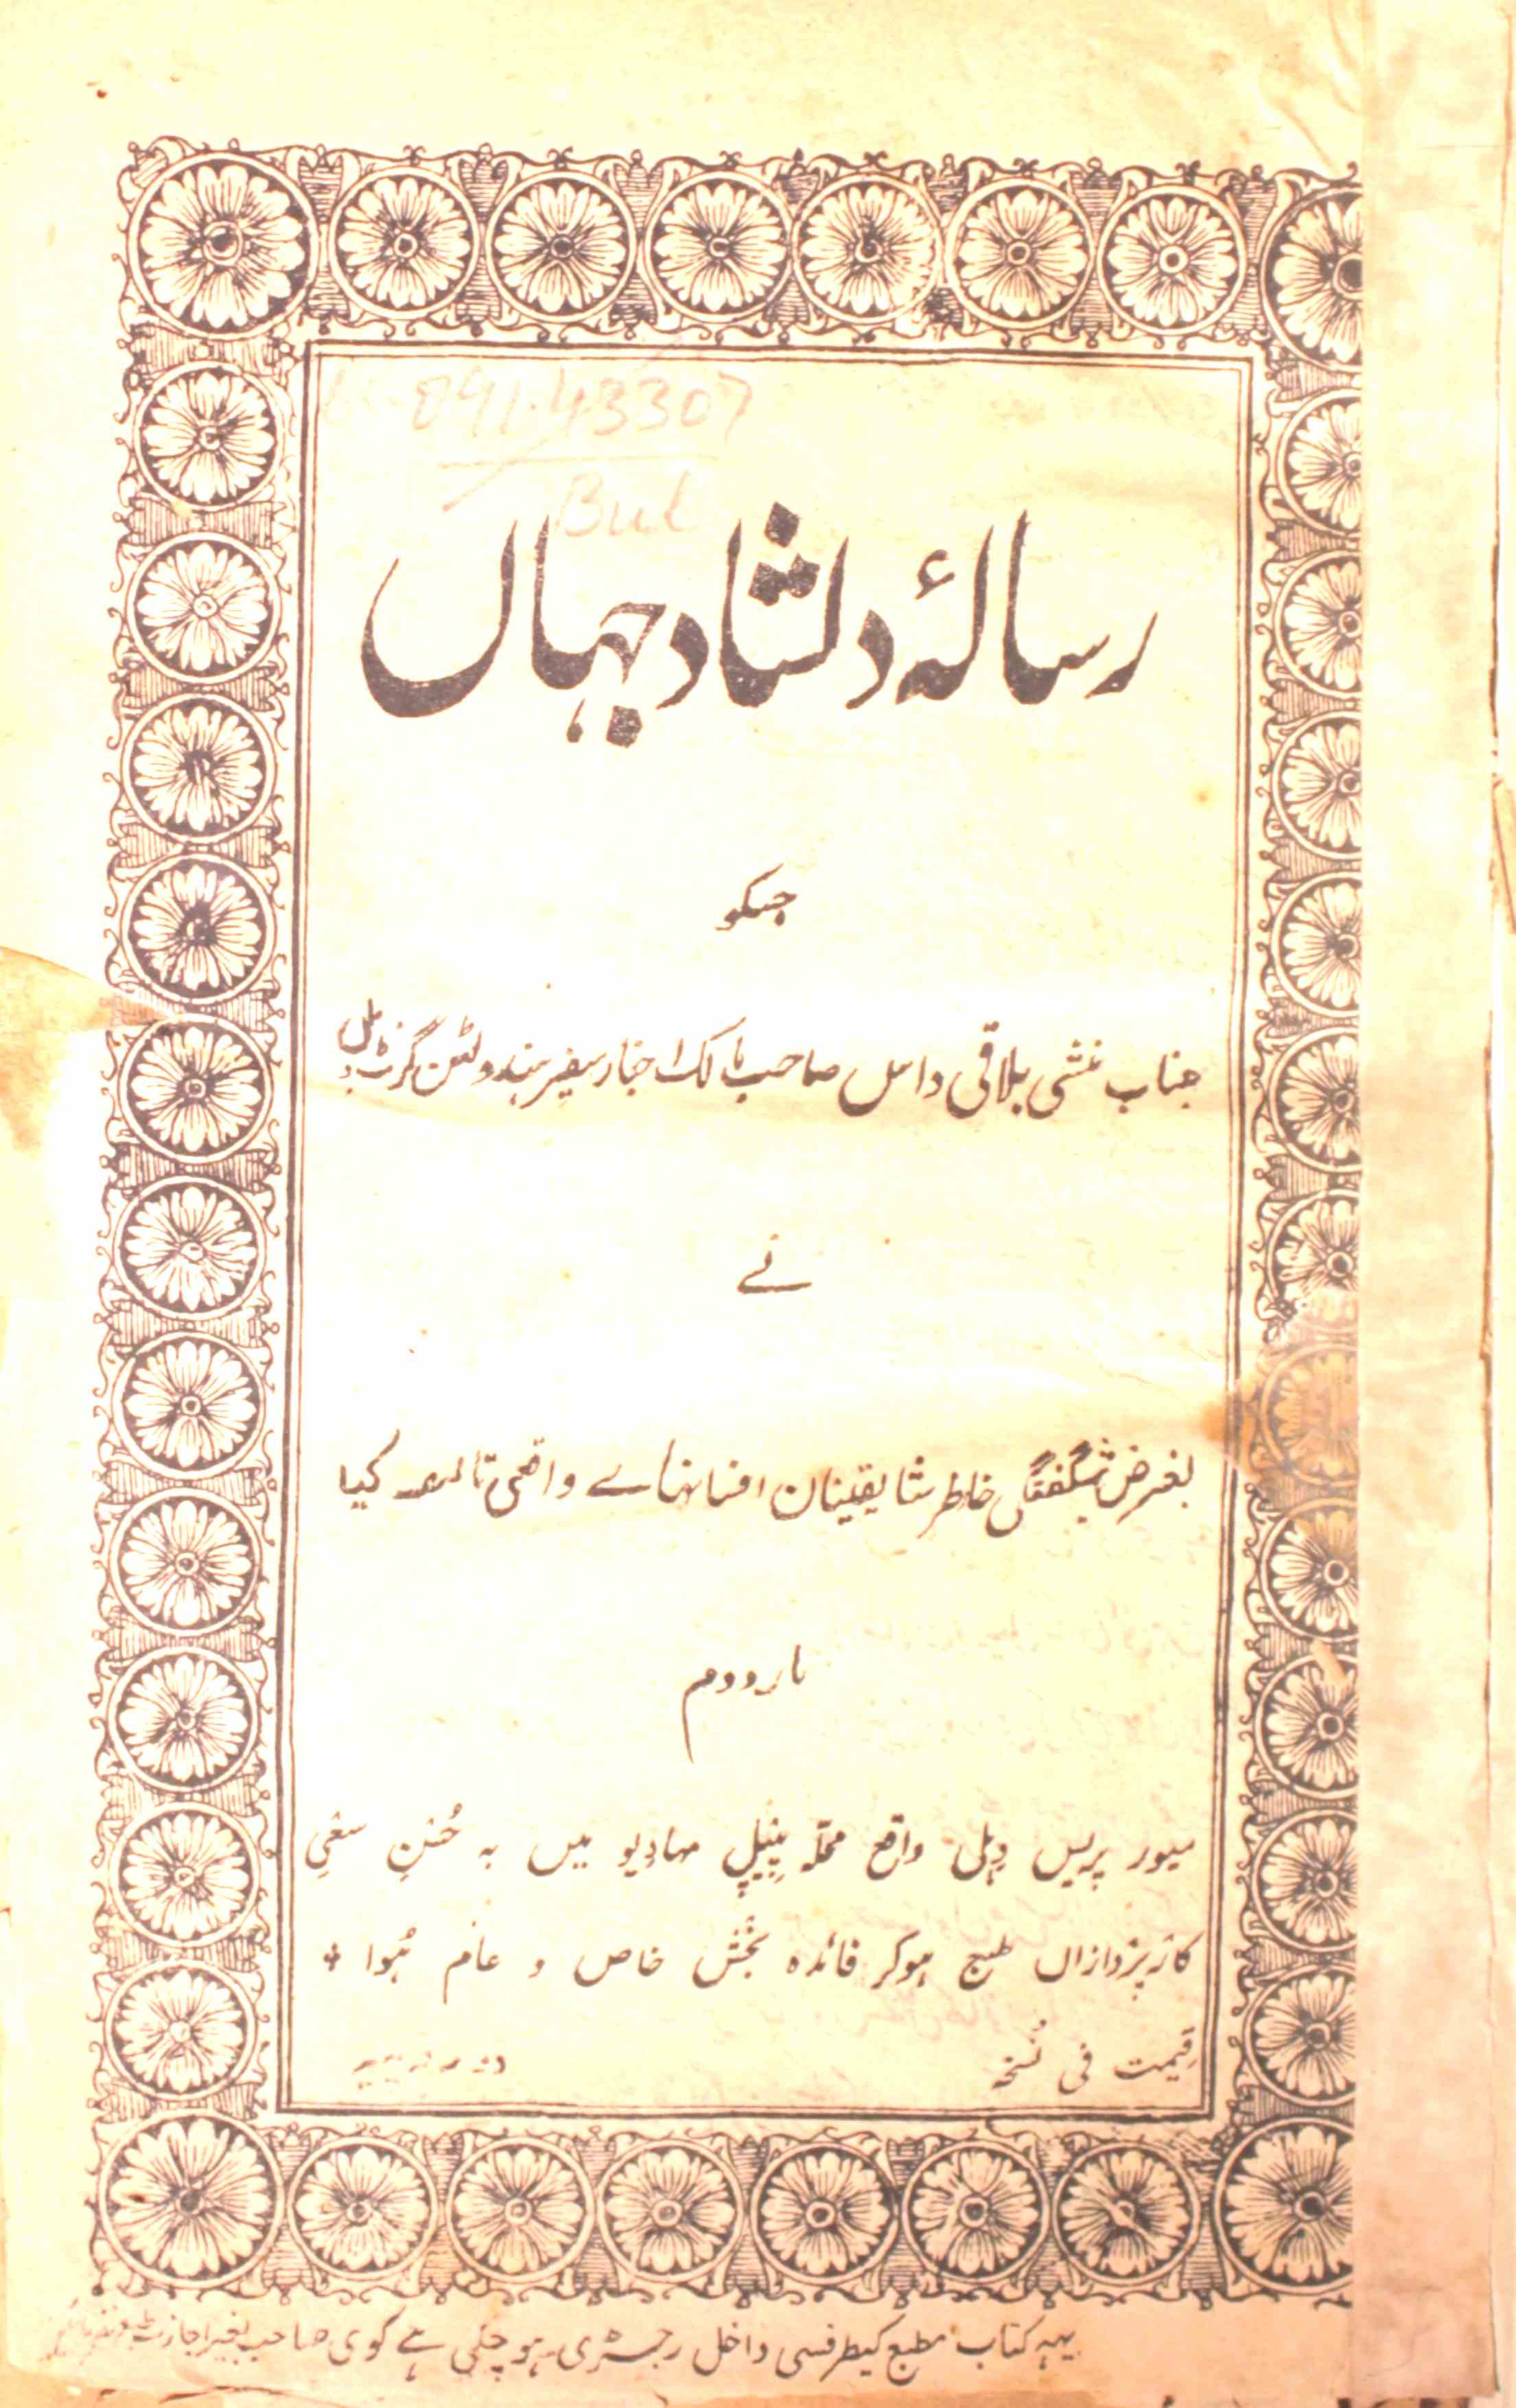 891.43307
Bul
رسالۂ دلشاد جہاں
جسکو
جناب منشی بلاقی داس صاحب مالک اخبار سفیر ہند و لٹن گزٹ دہلی
نے
بغرض شگفتگی خاطر شایقینان افسانہاے واقعی تالیف کیا
بار دوم
میور پریس دہلی واقع محلہ پیپل مہادیو میں بہ حُسنِ سعیِ
کارپردازاں طبع ہوکر فائدہ بخش خاص و عام ہُوا
قیمت فی نُسخہ
یہہ کتاب مطبع کیطرفسی داخل رجسٹری ہوچکی ہے کوی صاحب بغیر اجازت